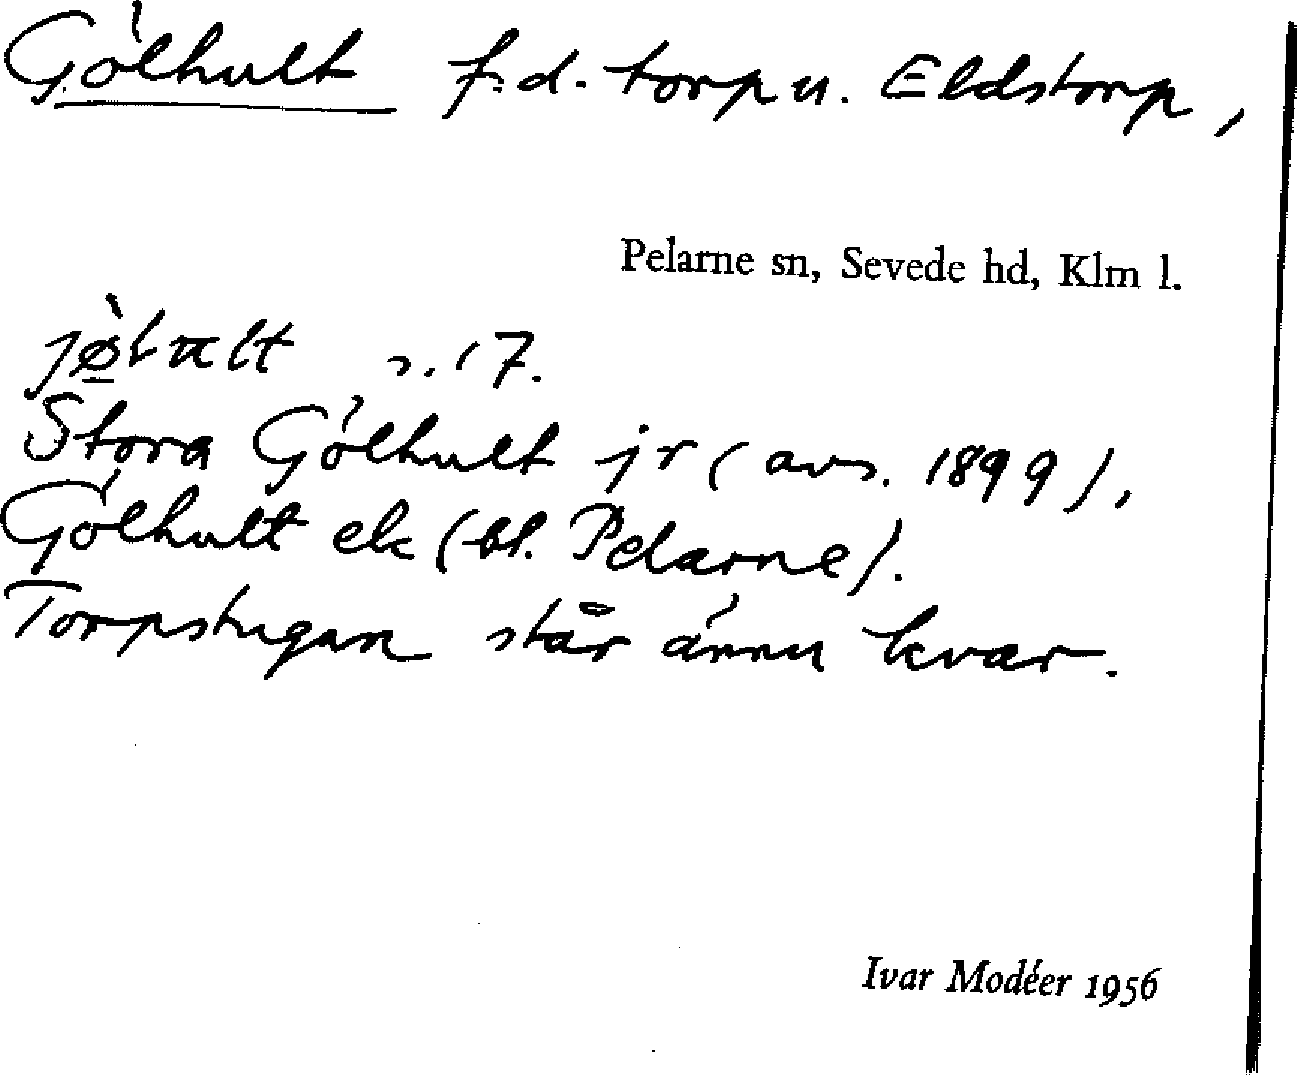 Gölhult f.d. torp u. Eldstorp,
Pelarne sn, Sevede hd, Klm l.
s. 17.
Stora Gölhult jr (avs. 1899),
Gölhult ek (bl. Pelarne).
Torpstugan står ännu kvar.
Ivar Modéer 1956